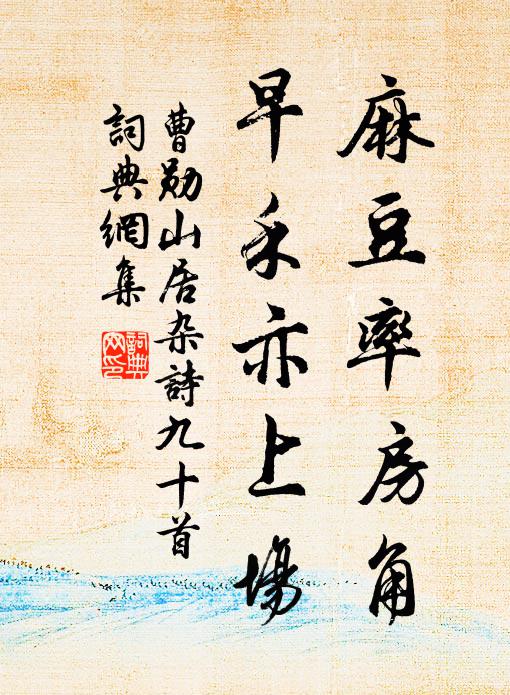 麻豆率房角
早禾亦上場
曹勛山居杂詩九十首
詞典網集
詞典
网印